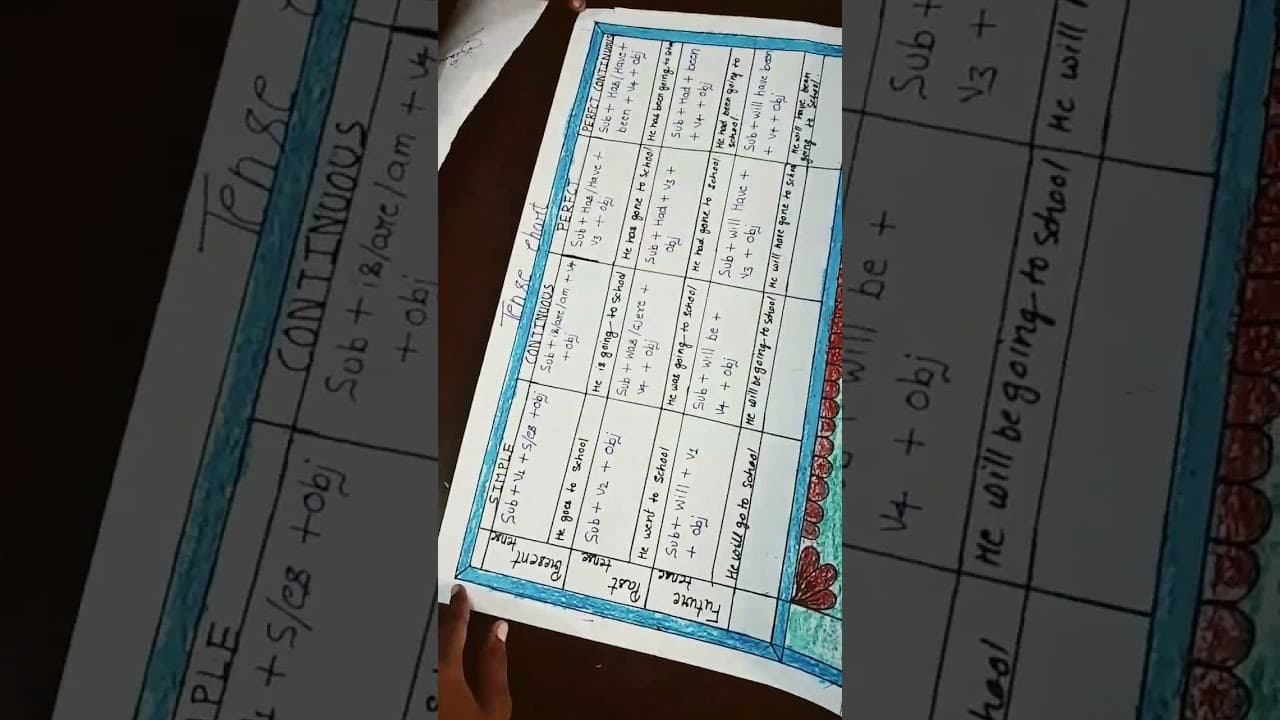 Tense chart
SIMPLE
CONTINUOUS
PERFECT
PERECT CONTINUOUS
Present tense
Sub + V1 + S/es + obj
He goes to school
Sub + is/are/am + V4
+ obj
He is going to school
Sub + Has/Have +
V3 + obj
He has gone to school
Sub + Has/Have +
been + V4 + obj
He has been going to
Past tense
Sub + V2 + obj
He went to school
Sub + was/were +
V4 + obj
He was going to school
Sub + Had + V3 +
obj
He had gone to school
Sub + Had + been
+ V4 + obj
He had been going to
school
Future tense
Sub + will + V1
+ obj
He will go to school
Sub + will be +
V4 + obj
He will be going to school
Sub + will Have +
V3 + obj
He will have gone to
Sub + will have been
+ V4 + obj
He will have been
going to school.